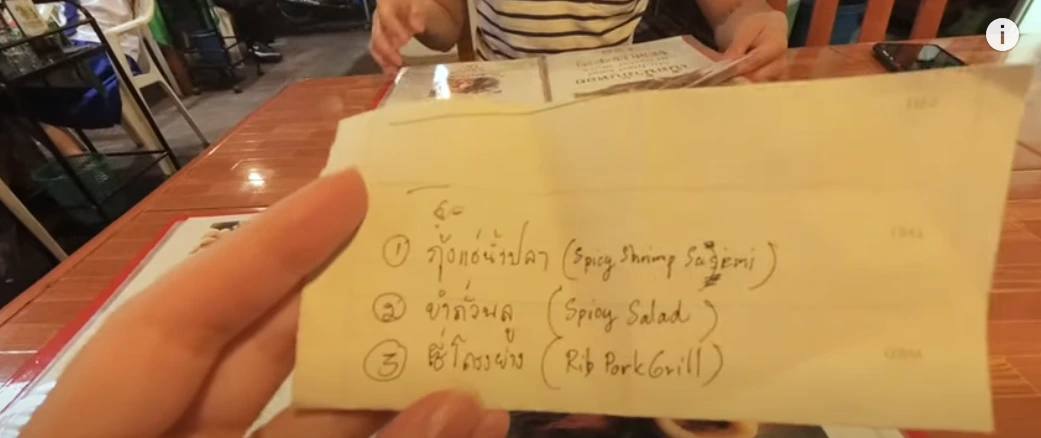 ① กุ้งแช่น้ำปลา (Spicy Shrimp Sašemi)
② ยำถั่วพลู (Spicy Salad)
③ ซี่โครงย่าง (Rib Pork Grill)